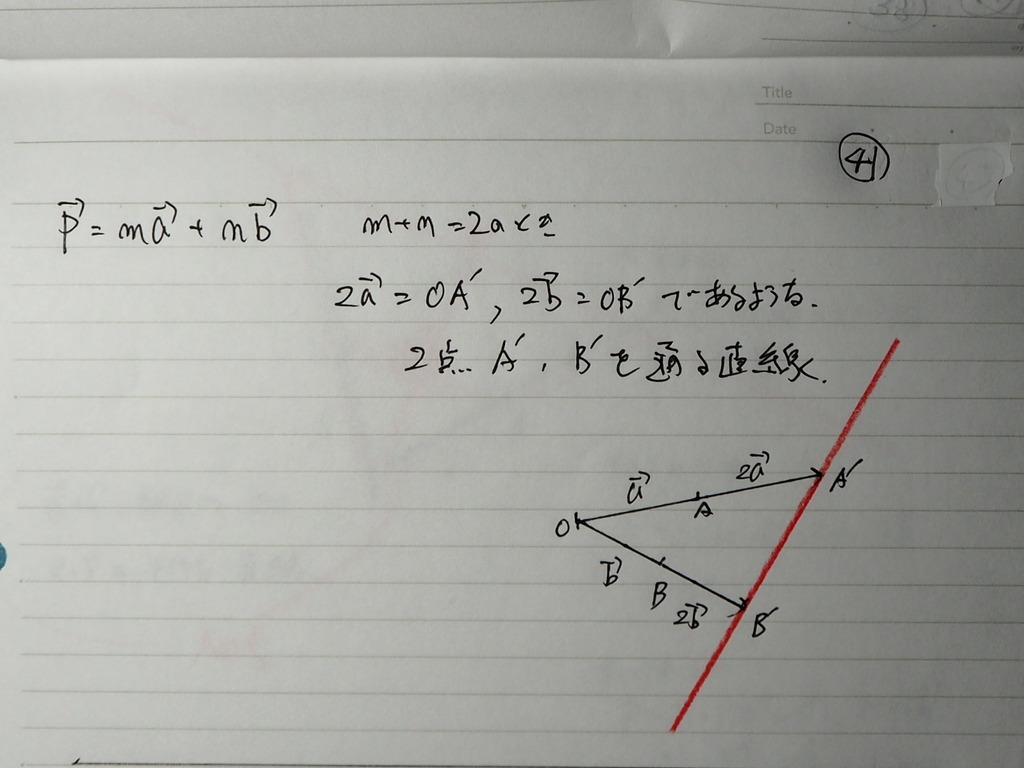 Title
Date
41
p⃗ = ma⃗ + nb⃗ m+n=2のとき
2a⃗ = OA′, 2b⃗ = OB′ であるような.
2点 A′, B′を通る直線.
a⃗ 2a⃗ A′
A
O
b⃗ B
2b⃗ B′